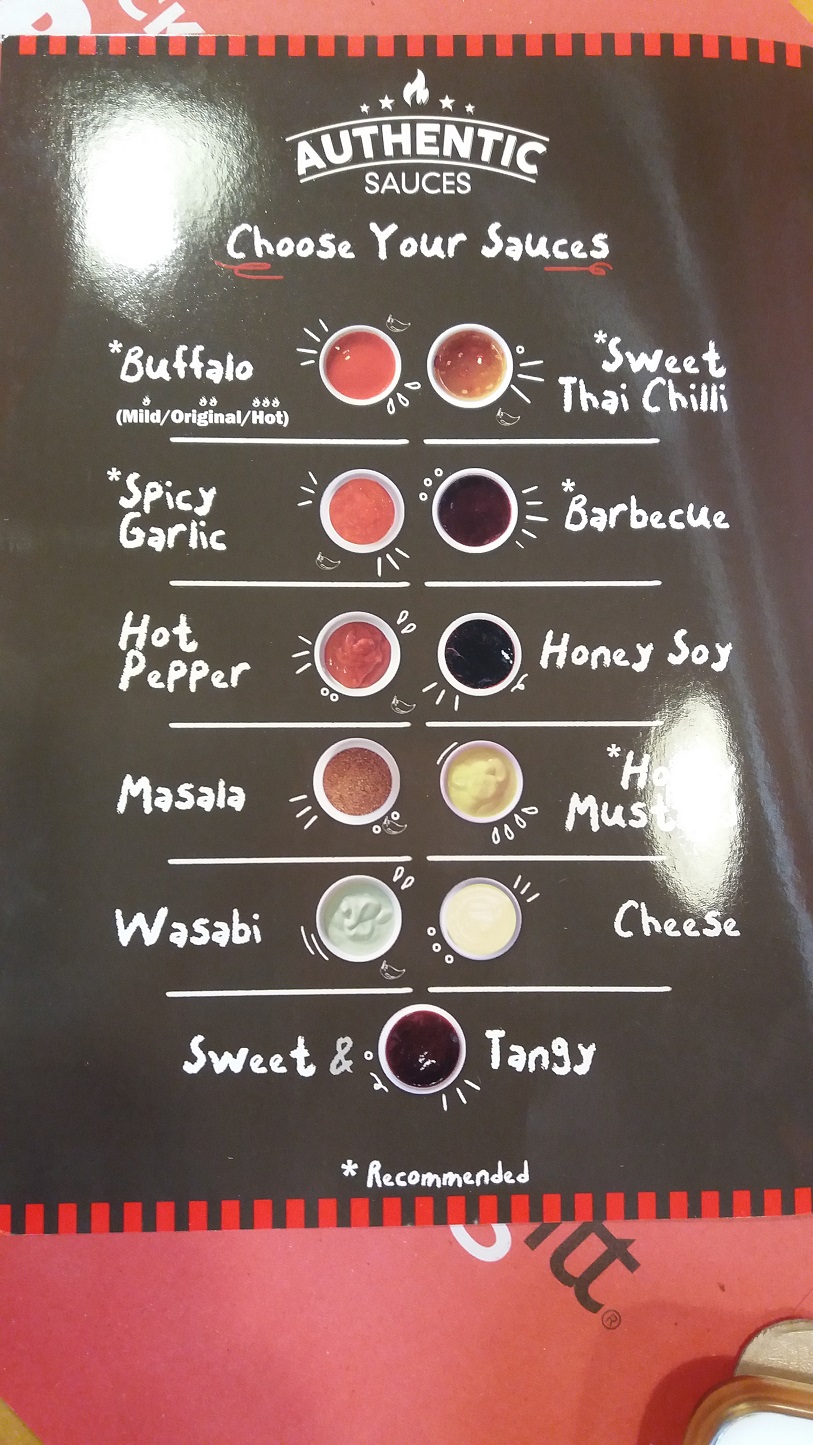 AUTHENTIC
SAUCES
Choose Your Sauces
*Buffalo
(Mild/Original/Hot)
*Sweet
Thai Chilli
*Spicy
Garlic
*Barbecue
Hot
Pepper
Honey Soy
Masala
Wasabi
Cheese
Sweet & Tangy
* Recommended
®